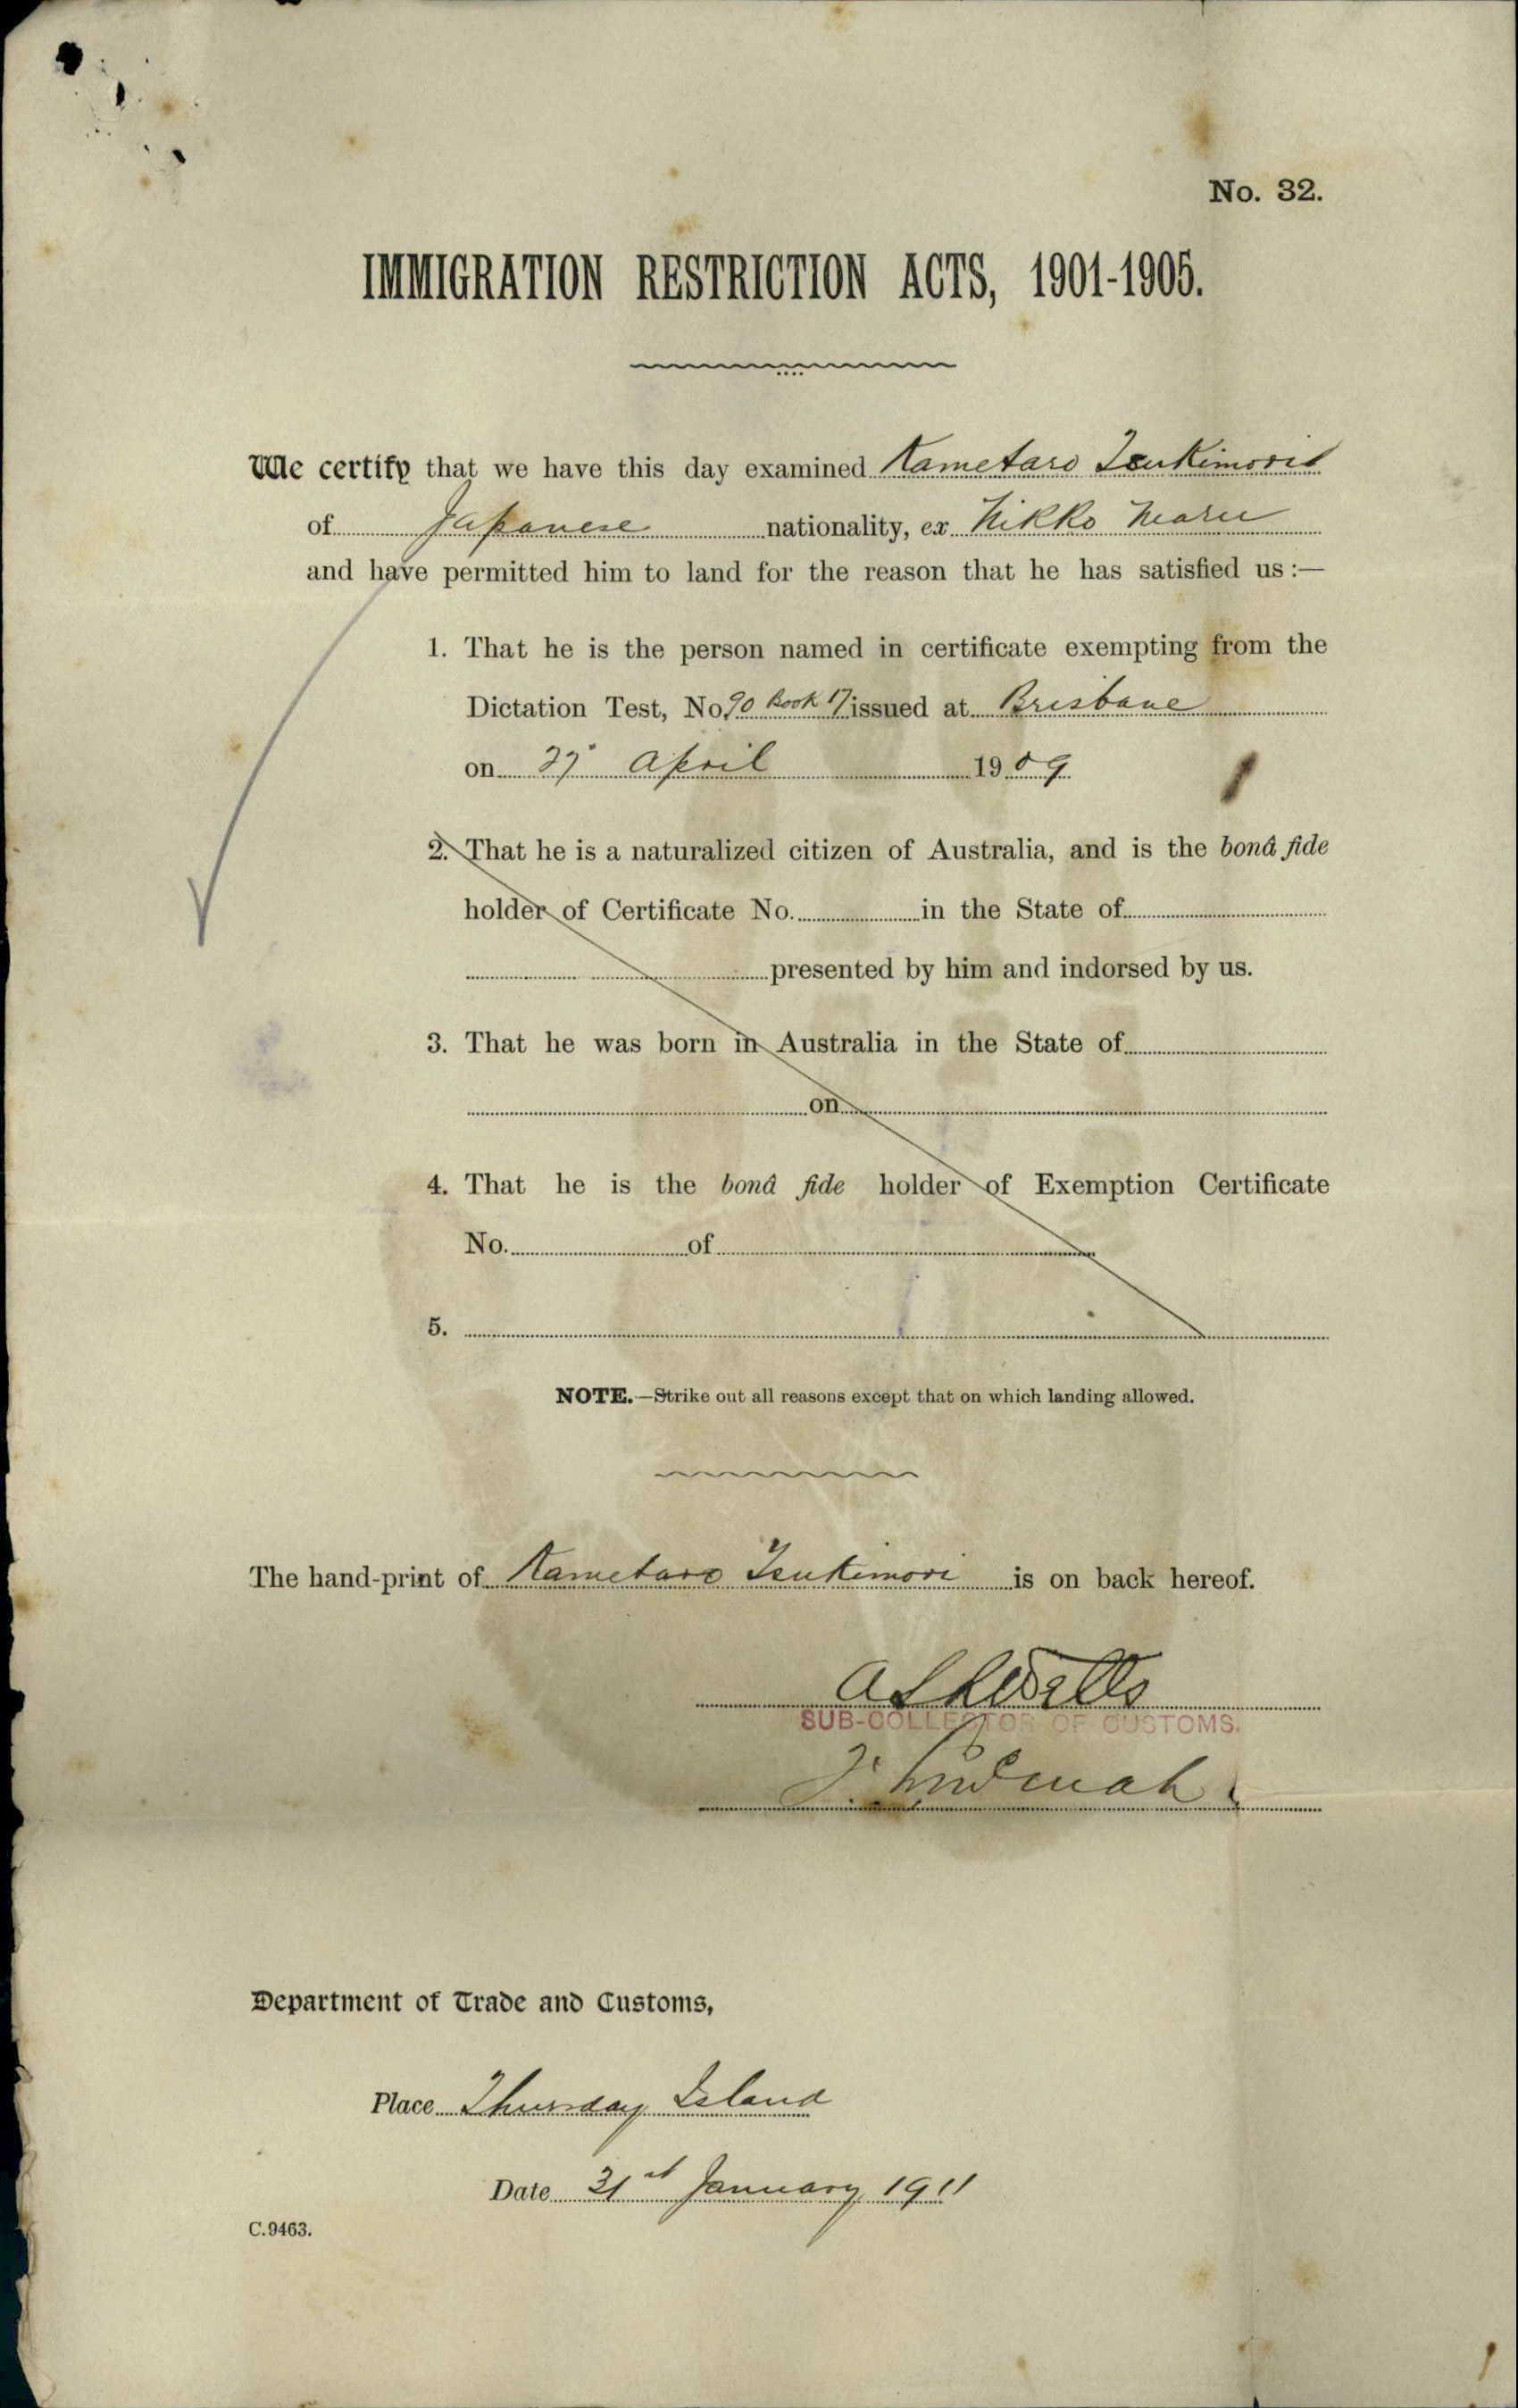 No. 32.
IMMIGRATION RESTRICTION ACTS, 1901-1905.
We certify that we have this day examined Kametaro Tsukimori
of Japanese nationality, ex Nikko Maru
and have permitted him to land for the reason that he has satisfied us :—
1. That he is the person named in certificate exempting from the
Dictation Test, No. 90 Book 17 issued at Brisbane
on 27 April 1909
2. That he is a naturalized citizen of Australia, and is the bonâ fide
holder of Certificate No. in the State of
presented by him and indorsed by us.
3. That he was born in Australia in the State of
on
4. That he is the bonâ fide holder of Exemption Certificate
No. of
5.
NOTE.—Strike out all reasons except that on which landing allowed.
The hand-print of Kametaro Tsukimori is on back hereof.
SUB-COLLECTOR OF CUSTOMS.
Department of Trade and Customs,
Place Thursday Island
Date 31st January 1911
C.9463.